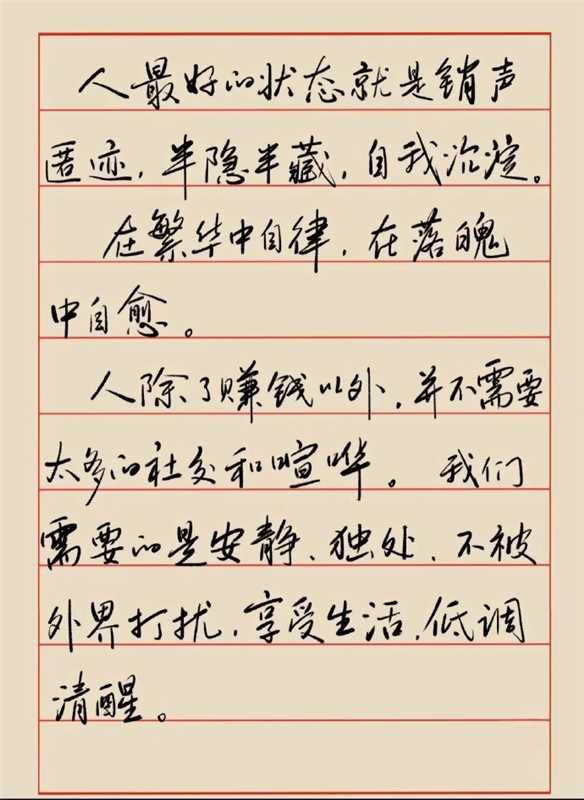 人最好的状态就是销声
匿迹，半隐半藏，自我沉淀。
在繁华中自律，在落魄
中自愈。
人除了赚钱以外，并不需要
太多的社交和喧哗。我们
需要的是安静、独处、不被
外界打扰，享受生活，低调
清醒。